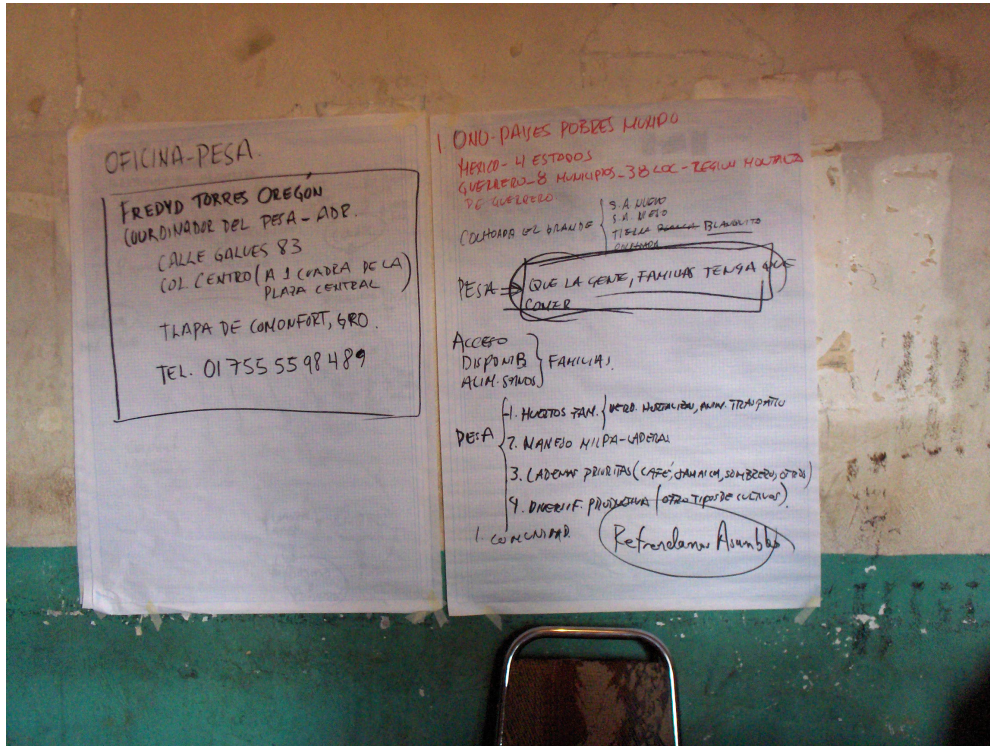 OFICINA-PESA.
FREDYD TORRES OREGÓN
COORDINADOR DEL PESA-ADR.
CALLE GALVES 83
COL CENTRO (A 1 CUADRA DE LA
PLAZA CENTRAL)
TLAPA DE COMONFORT, GRO.
TEL. 01 755 55 98 489
1 ONU-PAISES POBRES MUNDO
MEXICO-4 ESTADOS
GUERRERO-8 MUNICIPIOS-38 LOC-REGION MONTAÑA
DE GUERRERO
GRANDE { S.A. NUEVO
S.A. VIEJO
TIERRA BLANQUITO
PESA ⇒ QUE LA GENTE, FAMILIAS TENGA QUE
COMER
ACCESO
DISPONIB } FAMILIAS.
ALIM. SANOS
PESA { 1. HUERTOS FAM. { VERD. HORTALIZAS, ANIM. TRASPATIO
2. MANEJO MILPA-LADERAS
3. CADENAS PRIORITAS (CAFÉ, JAMAICA, SOMBRERO, OTROS)
4. DIVERSIF. PRODUCTIVA (OTRO TIPOS DE CULTIVOS).
1. COMUNIDAD.
Refrendamos Asamblea